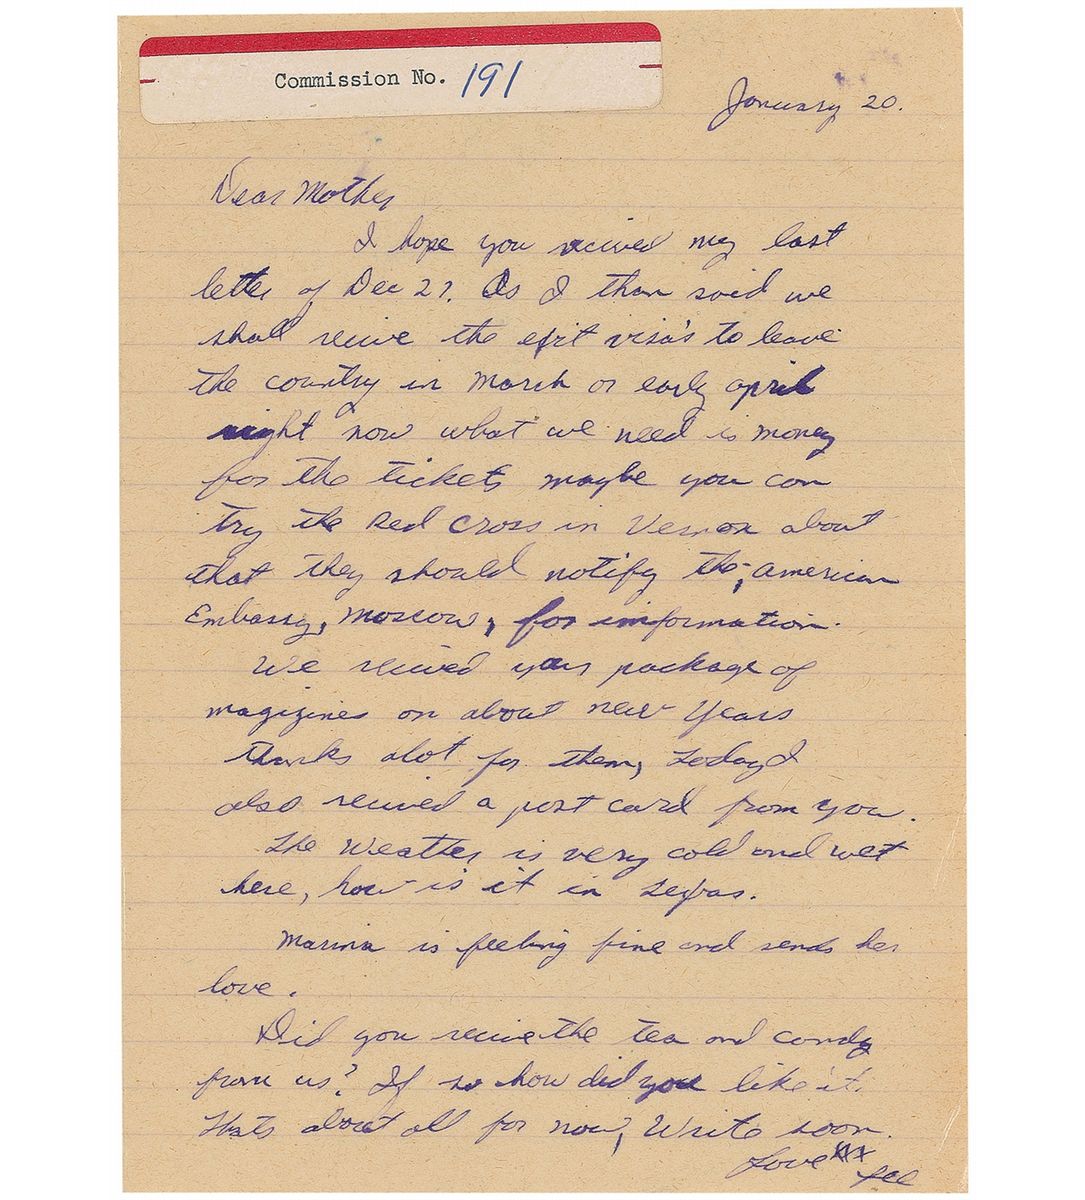 Commission No. 191
January 20.
Dear Mother
I hope you recived my last
letter of Dec 27. As I than said we
shall recive the exit visa's to leave
the country in March or early april
right now what we need is money
for the tickets maybe you can
try the Red Cross in Vernon about
that they should notify the, american
Embassy, Moscow, for information.
We recived your package of
magizines on about new Years
thanks alot for them, today I
also recived a post card from you.
The Weather is very cold and wet
here, how is it in Texas.
Marina is feeling fine and sends her
love.
Did you recive the tea and candy
from us? If so how did you like it.
Thats about all for now, Write soon.
Love XXX Lee